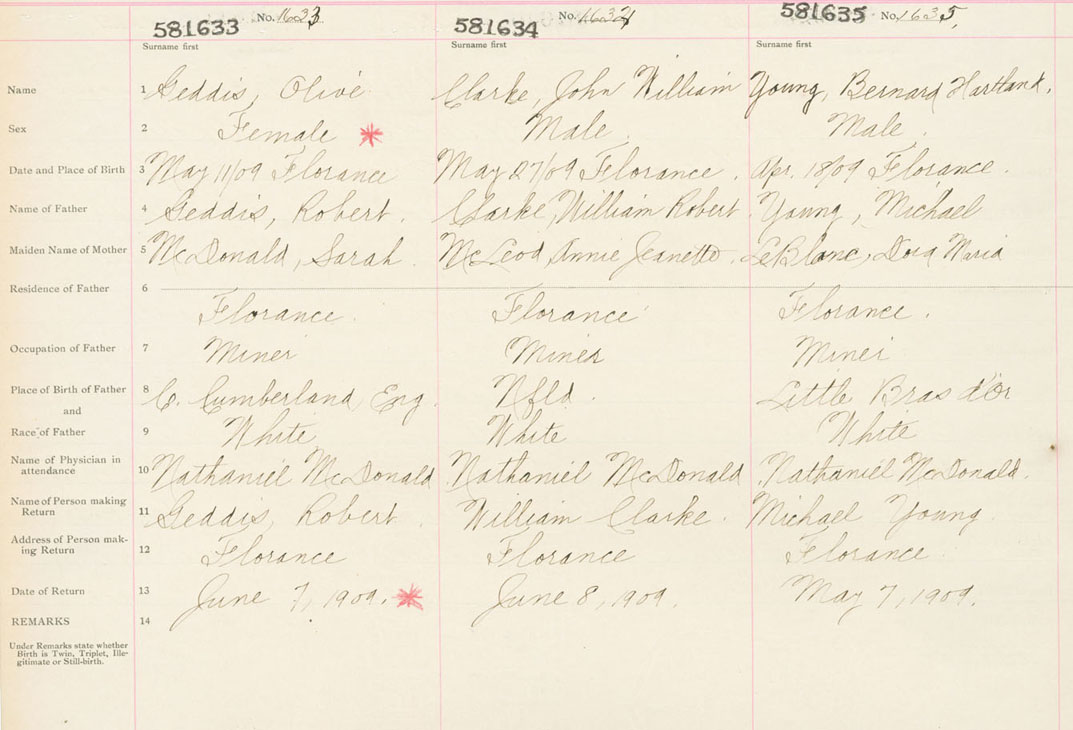 581633 No. 1633 581634 No. 1634 581635 No. 1635
Surname first Surname first Surname first
Name 1 Geddis, Olive Clarke, John William Young, Bernard Hartland.
Sex 2 Female * Male. Male.
Date and Place of Birth 3 May 11/09 Florance May 27/09 Florance. Apr. 18/09 Florance.
Name of Father 4 Geddis, Robert. Clarke, William Robert. Young, Michael
Maiden Name of Mother 5 McDonald, Sarah McLeod, Annie Jeanette. LeBlanc, Dora Maria
Residence of Father 6
Florance. Florance Florance.
Occupation of Father 7 Miner Miner Miner
Place of Birth of Father 8 C. Cumberland, Eng. Nfld. Little Bras d'Or
and
Race of Father 9 White White White
Name of Physician in
attendance 10 Nathaniel McDonald Nathaniel McDonald Nathaniel McDonald.
Name of Person making
Return 11 Geddis, Robert William Clarke. Michael Young
Address of Person mak-
ing Return 12 Florance Florance Florance
Date of Return 13 June 7, 1909. * June 8, 1909. May 7, 1909.
REMARKS 14
Under Remarks state whether
Birth is Twin, Triplet, Ille-
gitimate or Still-birth.